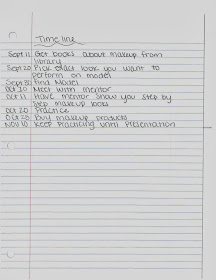 Time line
Sept 11 Get books about makeup from
library
Sept 20 Pick exact look you want to
perform on model
Sept 30 Find Model
Oct 10 Meet with mentor
Oct 11 Have mentor show you step by
step makeup looks
Oct 20 Practice
Oct 28 Buy makeup products
Nov 10 Keep Practicing until Presentation